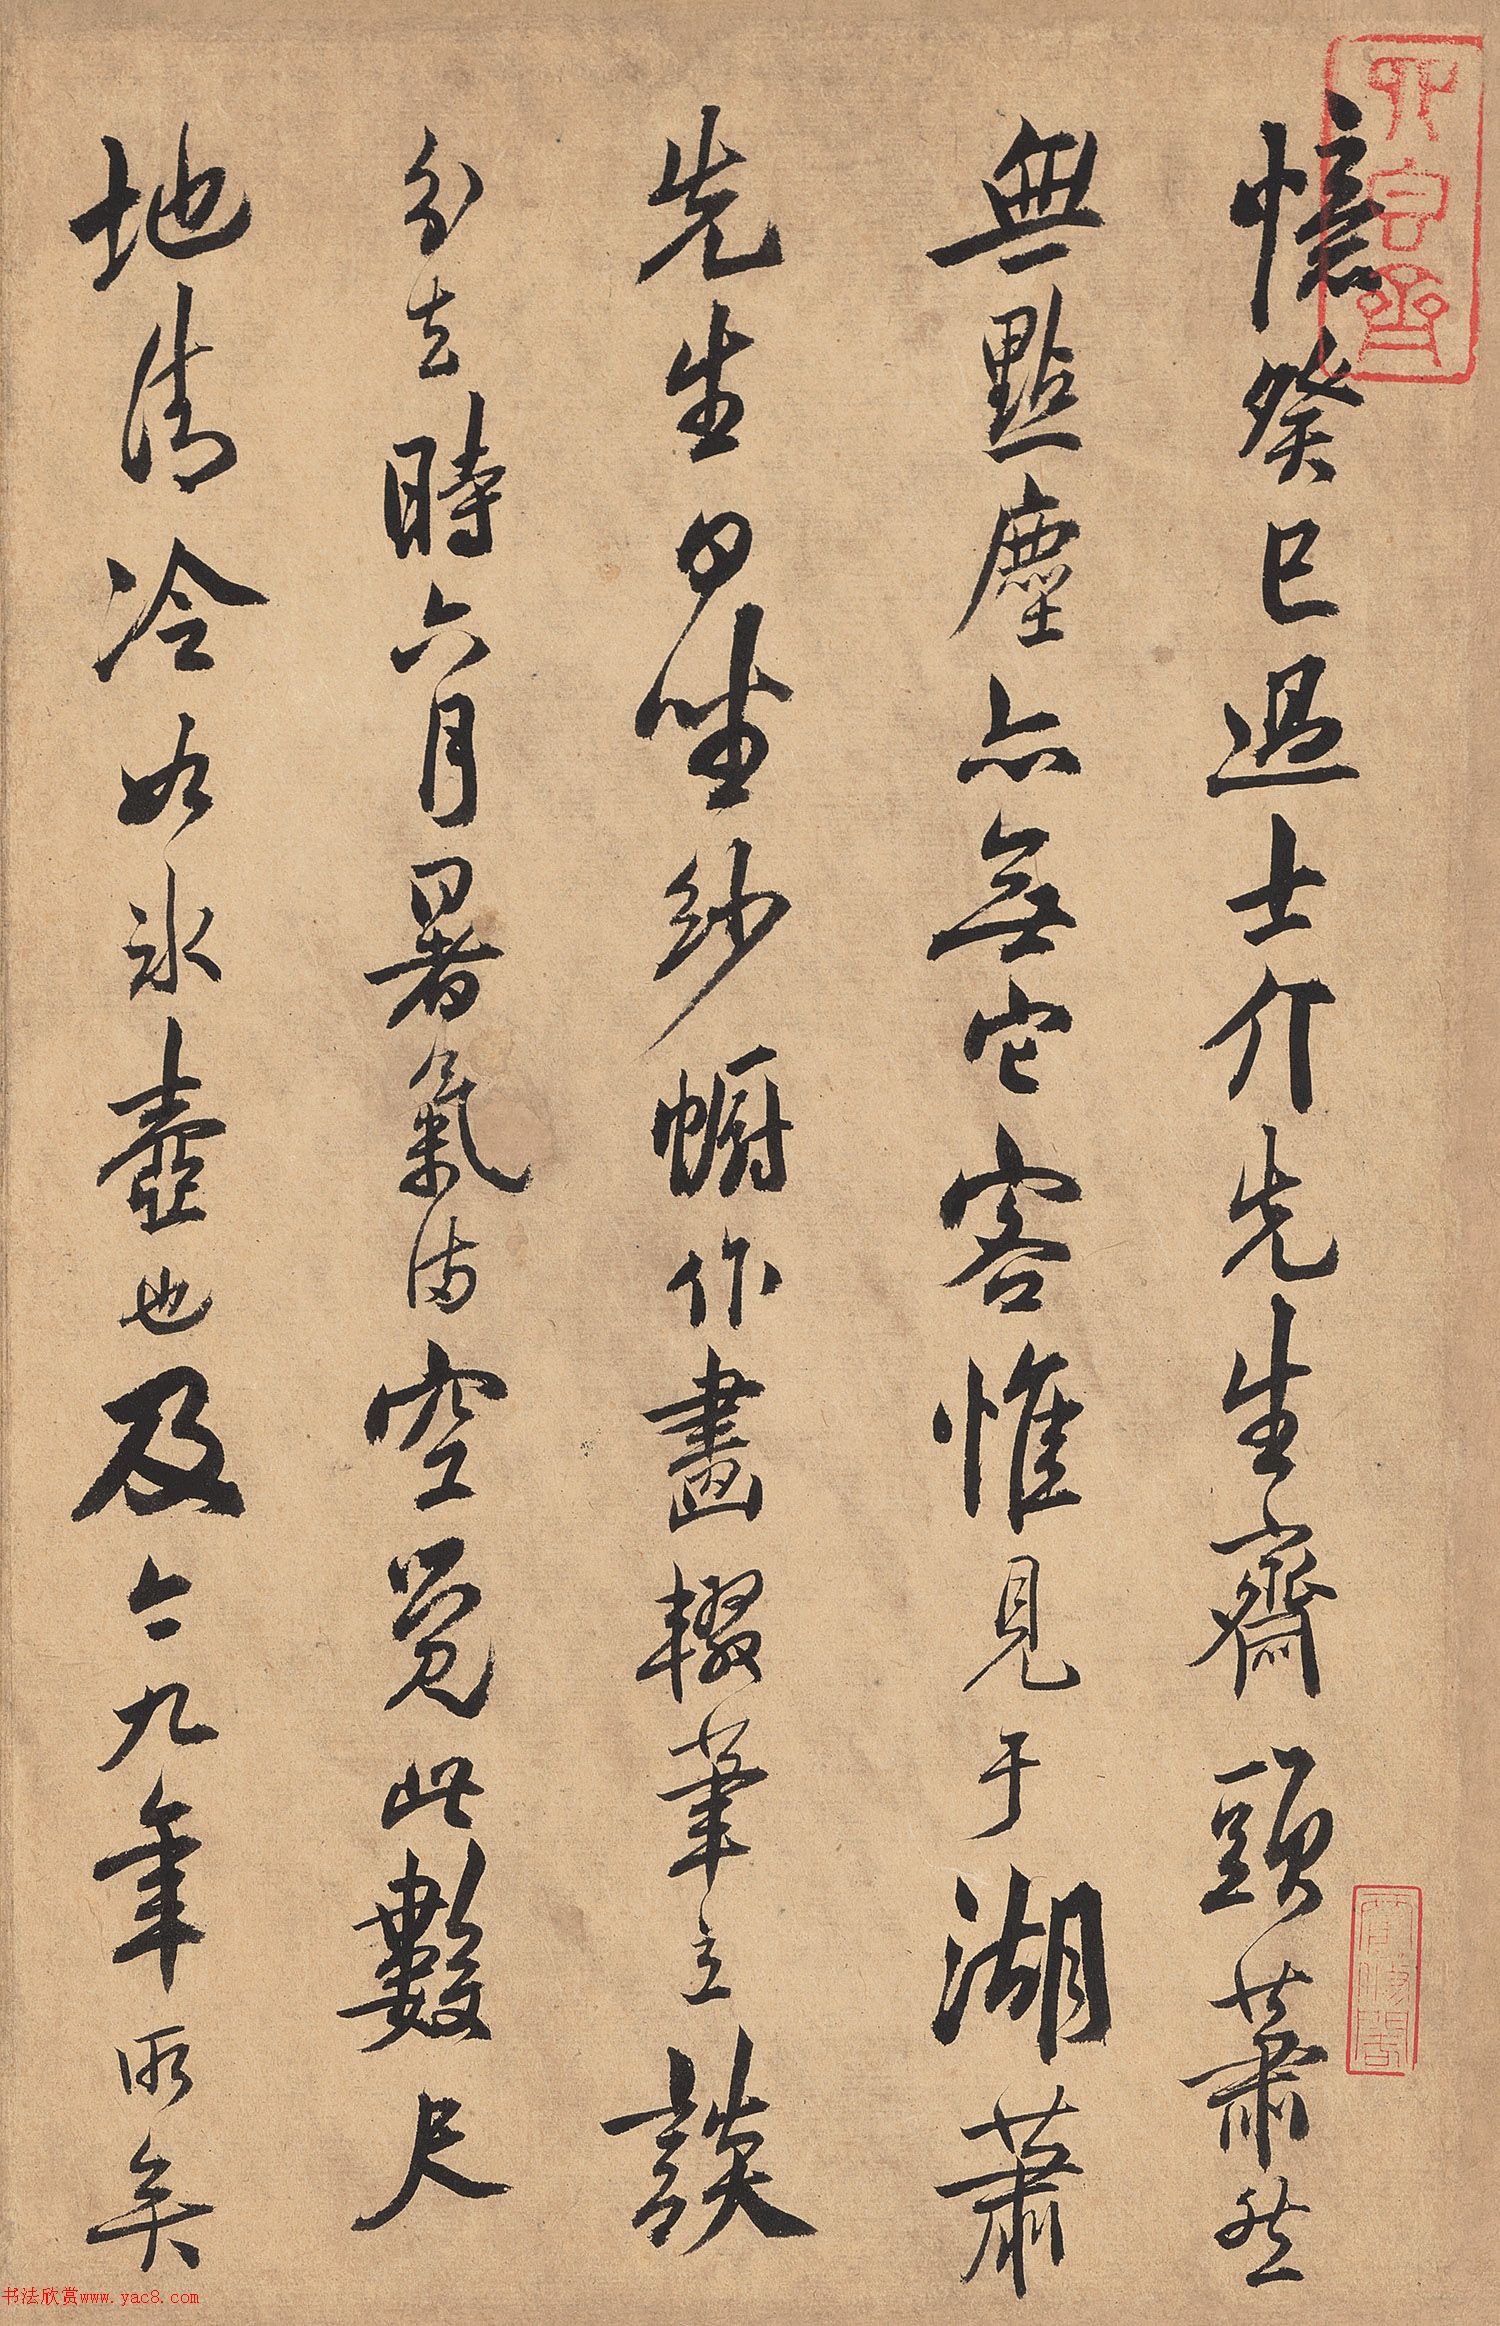 憶癸巳過士介先生齋頭蕭然
無點塵亦無它客惟見于湖蕭
先生日坐紗幮作畫輟筆立談
分去時六月暑氣滿空覓此數尺
地清冷如冰壺也及今九年所矣
书法欣赏www.yac8.com